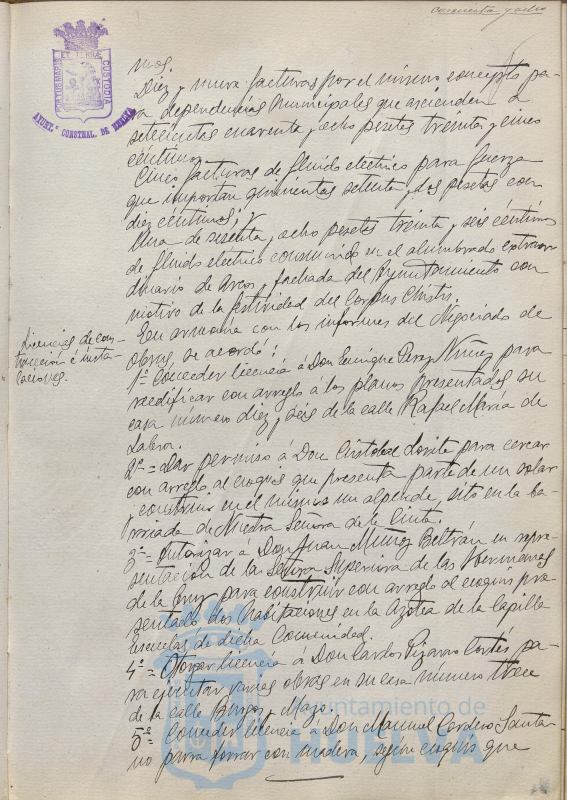 Cincuenta y ocho
mos.
Diez y nueve facturas por el mismo concepto pa-
ra dependencias municipales que ascienden a
setecientas cuarenta y ocho pesetas treinta y cinco
céntimos.
Cinco facturas de fluido eléctrico para fuerza
que importan quinientas setenta y dos pesetas con
diez céntimos; y
Una de sesenta y ocho pesetas treinta y seis céntimos
de fluido electrico consumido en el alumbrado extraor-
dinario de arcos y fachada del Ayuntamiento con
motivo de la festividad del Corpus Christi
Licencias de cons-
trucción é insta-
laciones.
En armonia con los informes del Negociado de
Obras, se acordó:
1º= Conceder licencia á Don Enrique Perez Núñez para
reedificar con arreglo á los planos presentados su
casa número diez y seis de la calle Rafael María de
Labra.
2º= Dar permiso á Don Cristobal para cercar
con arreglo al croquis que presenta parte de un solar
y construir en el mismo un alpende, sito en la ba-
rriada de Nuestra Señora de la Cinta.
3º= Autorizar á Don Juan Muñoz Beltrán en repre-
sentación de la Señora Superiora de las Hermanas
de la Cruz para construir con arreglo al croquis pre-
sentado dos habitaciones en la azotea de la Capilla
Escuelas de dicha Comunidad.
4º= Otorgar licencia á Don Carlos Pizarro Cortés pa-
ra ejecutar varias obras en su casa número trece
de la calle Burgos y Mazo.
5º= Conceder licencia á Don Manuel Cordero Santa-
no para forrar con madera, según croquis que
AYUNT.º CONSTNAL. DE HUELVA
PORTUS MARIS ET TERRAE CUSTODIA
Ayuntamiento de
HUELVA